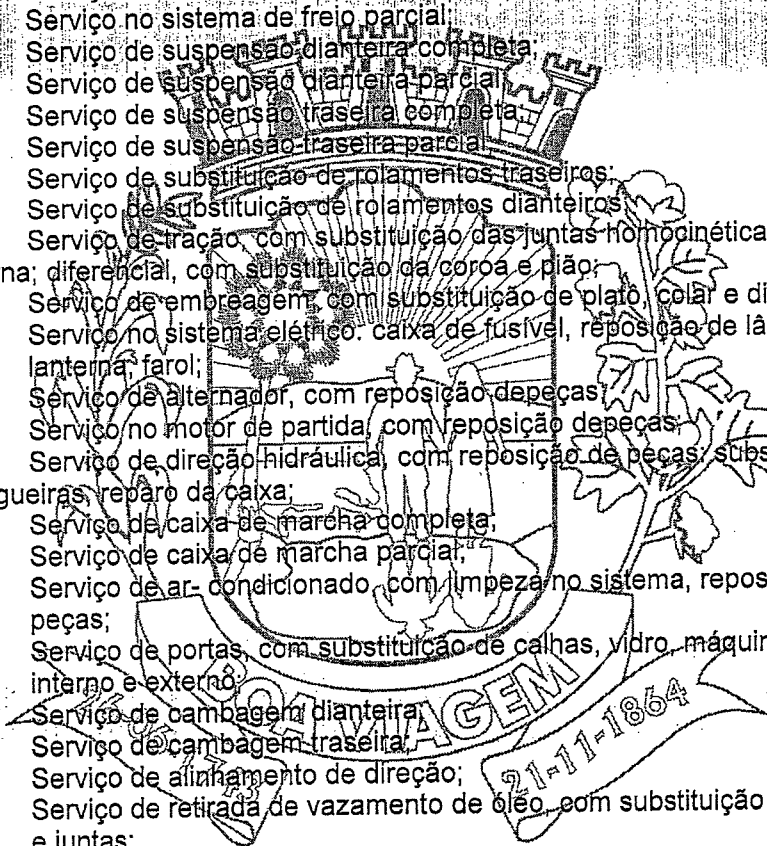 Serviço no sistema de freio parcial;
Serviço de suspensão dianteira completa;
Serviço de suspensão dianteira parcial;
Serviço de suspensão traseira completa;
Serviço de suspensão traseira parcial;
Serviço de substituição de rolamentos traseiros;
Serviço de substituição de rolamentos dianteiros;
Serviço de tração, com substituição das juntas homocinética
na; diferencial, com substituição da coroa e pião;
Serviço de embreagem, com substituição de platô, colar e di
Serviço no sistema elétrico: caixa de fusível, reposição de lâ
lanterna, farol;
Serviço de alternador, com reposição depeças;
Serviço no motor de partida, com reposição depeças;
Serviço de direção hidráulica, com reposição de peças; subs
gueiras, reparo da caixa;
Serviço de caixa de marcha completa;
Serviço de caixa de marcha parcial;
Serviço de ar- condicionado, com limpeza no sistema, repos
peças;
Serviço de portas, com substituição de calhas, vidro, máquin
interno e externo;
Serviço de cambagem dianteira;
Serviço de cambagem traseira;
Serviço de alinhamento de direção;
Serviço de retirada de vazamento de óleo, com substituição
e juntas;
BOA VIAGEM
21-11-1864